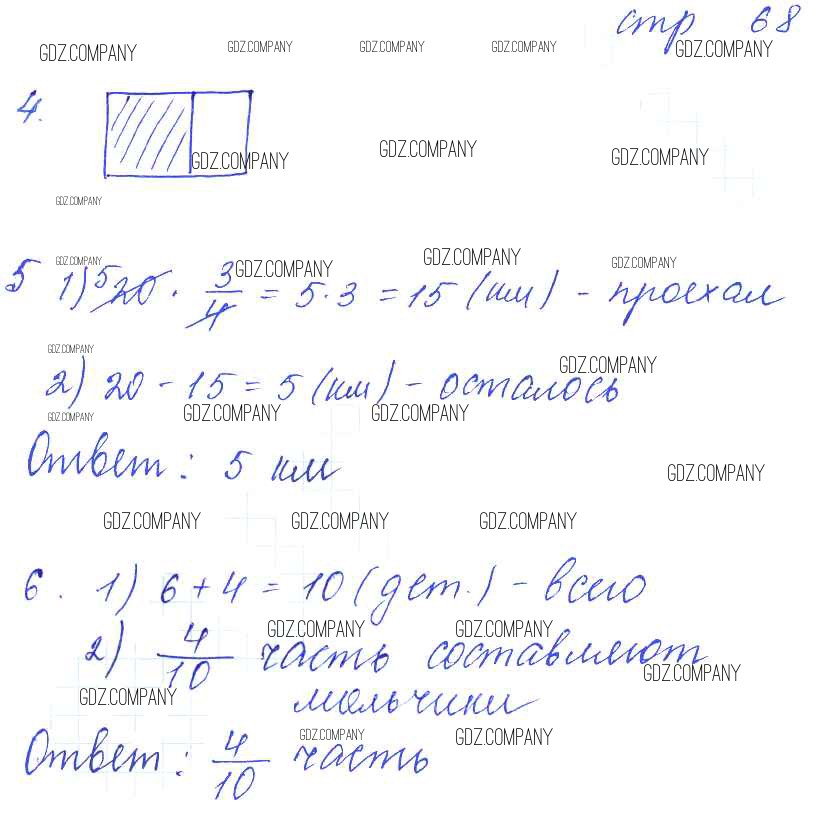 стр 68
GDZ.COMPANY GDZ.COMPANY GDZ.COMPANY GDZ.COMPANY GDZ.COMPANY
4.
GDZ.COMPANY GDZ.COMPANY GDZ.COMPANY
GDZ.COMPANY
GDZ.COMPANY GDZ.COMPANY GDZ.COMPANY GDZ.COMPANY
5 1) 5 20 · 3/4 = 5·3 = 15 (км) - проехал
GDZ.COMPANY GDZ.COMPANY
2) 20 - 15 = 5 (км) - осталось
GDZ.COMPANY GDZ.COMPANY GDZ.COMPANY
Ответ: 5 км
GDZ.COMPANY
GDZ.COMPANY GDZ.COMPANY GDZ.COMPANY
6. 1) 6 + 4 = 10 (дет.) - всего
GDZ.COMPANY GDZ.COMPANY
2) 4/10 часть составляют
GDZ.COMPANY
мальчики
GDZ.COMPANY
GDZ.COMPANY GDZ.COMPANY
Ответ: 4/10 часть